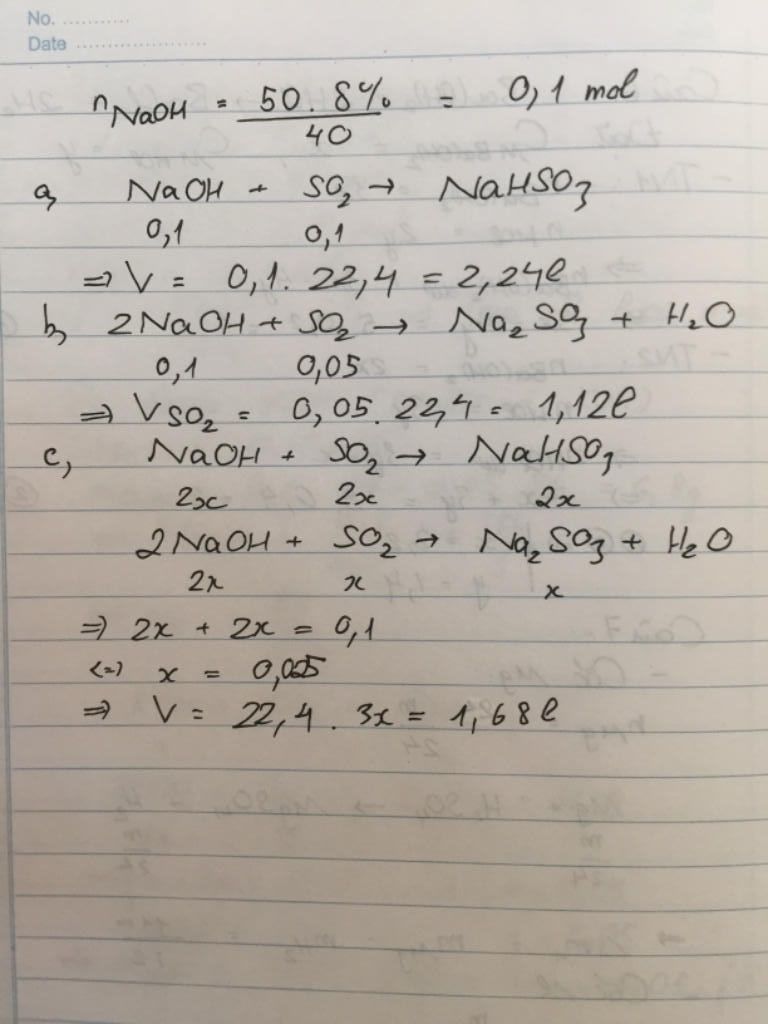 No. ............
Date ........................
nNaOH = 50.8% / 40 = 0,1 mol
a, NaOH + SO2 → NaHSO3
0,1 0,1
⇒ V = 0,1. 22,4 = 2,24l
b, 2NaOH + SO2 → Na2SO3 + H2O
0,1 0,05
⇒ VSO2 = 0,05. 22,4 = 1,12l
c, NaOH + SO2 → NaHSO3
2x 2x 2x
2NaOH + SO2 → Na2SO3 + H2O
2x x x
⇒ 2x + 2x = 0,1
(=) x = 0,025
⇒ V = 22,4 . 3x = 1,68l